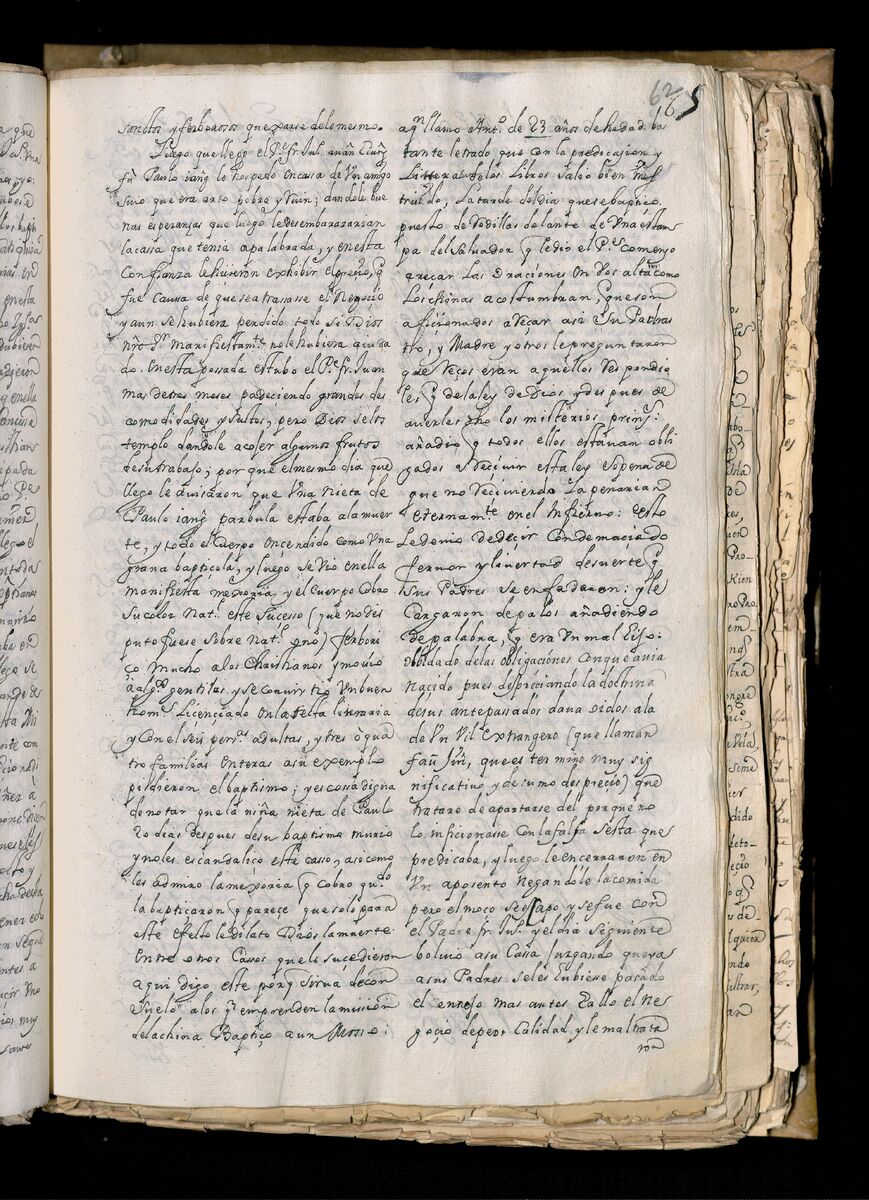 62
165
sanctos y ferborosos que xarse de lo mesmo.
Luego que llego el Pe. fr. Jul. a
Paulo iang lo hospedo en casa de Vn amigo
suio que era arto pobre y Ruin; dandole bue
nas esperanzas que luego le desembarazarian
la cassa que tenia apalabrada, y en esta
Confianza le hizieron exhibir el precio, q
fue Caussa de que se atrasasse el Negocio
y aun se hubiera perdido todo si Dios
nro Sr. manifiestamte. no le hubiera aiuda
do. En esta possada estubo el Pe. fr. Juan
mas de tres meses padeciendo grandes des
comodidades y sustos, pero Dios se los
templo dandole a coger algunos frutos
de su trabajo; por que el mesmo dia que
llego le auisaron que Vna Nieta de
Paulo iang parbula estaba a la muer
te, y todo el Cuerpo encendido como Vna
grana bapticola, y luego se vio en ella
manifiesta mexoria, y el Cuerpo Cobro
Su color Natl. este Sucesso (que no des
puto fuese Sobre Natl. o no) ferbori
ço mucho a los Christianos y mouio
a algs. gentiles, y se convirtio Vn buen
home. Licenciado en la secta literaria
y Con el seis perss. adultas, y tres o qua
tro familias enteras a su exemplo
pidieron el baptismo; y es cossa digna
de notar que la niña nieta de Paulo
20 dias despues de su baptismo murio
y no les escandaliço este casso, asi como
les admiro la mexoria q Cobro qdo.
la bapticaron q parece que solo para
este efecto le dilato Dios la muerte.
Entre otros Cassos que le sucedieron
aqui digo este porq sirua de con
suelo a los q emprenden la mission
de la china. Baptiço a un Mosso:
aqn. llamo Anto. de 23 años de hedad. bas
tante letrado que con la predicacion y
Littera de los Libros Salio bien ins
truido, La tarde del dia que se baptiço
puesto de Rodillas delante de Vna estam
pa del Saluador q le dio el Pe. començo
a reçar Las Oraciones en Vos alta, como
Los chinas acostumbran, que son
aficionados a Reçar asi Su Padras
tro, y Madre y otros le preguntaron
que Reços eran aquellos Respondio
les, q de la ley de Dios y despues de
auerles dho los misterios prins:
añadio q todos ellos estauan obli
gados a Reciuir esta ley so pena de
que no Reciuiendo La penarian
eternamte. en el Infierno: esto
Le deuio de deçir Con demaciado
feruor y liuertad de suerte q
sus Padres se enfadaron: y le
Cargaron de palos añadiendo
de palabra, q era Vn mal Hijo:
olbidado de las obligaciones con que auia
nacido pues despreciando la doctrina
de sus antepassados daua oidos a la
de Vn Vil Extrangero (que llaman
fan jin, que es termino muy sig
nificatiuo y de sumo desprecio) que
tratare de apartarse del porque no
lo inficionasse Con la falsa Secta que
predicaba, y luego le encerraron en
Vn aposento negandole la comida
pero el moço se escapo y se fue con
el Padre fr. Jul. y el dia Seguiente
boluio a su Cassa Jusgando que ya
a sus Padres se les hubiese pasado
el enojo mas antes hallo el ne
gocio de peor Calidad y le maltrata
ron